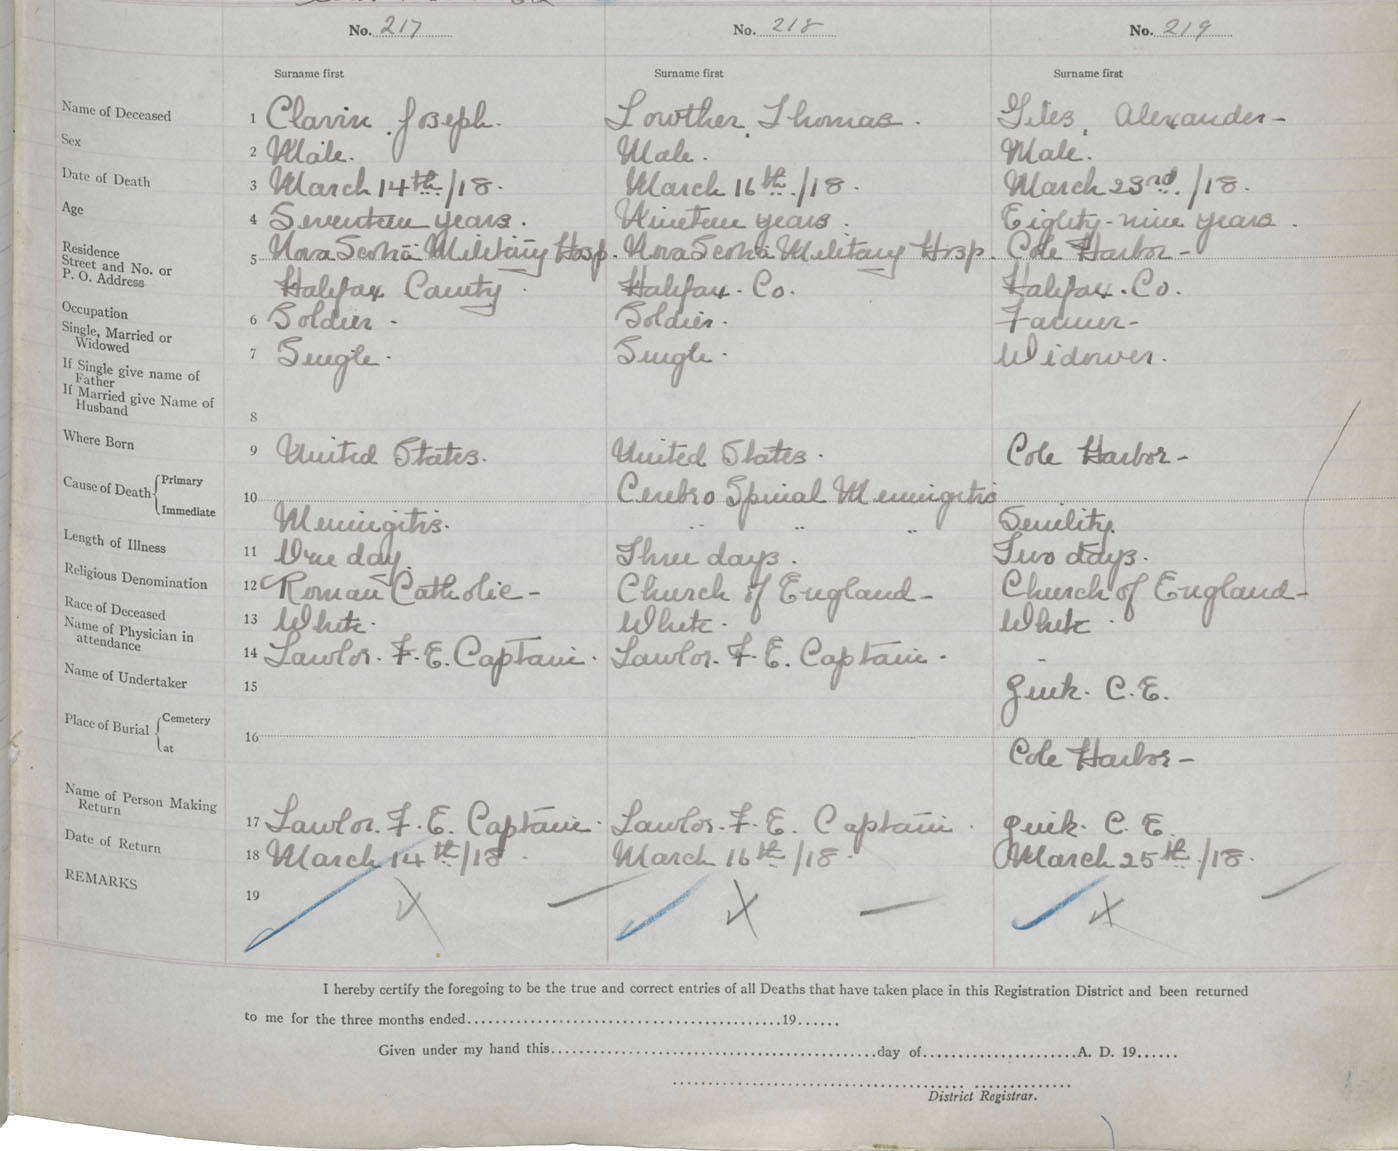 No. 217 No. 218 No. 219
Surname first Surname first Surname first
Name of Deceased 1 Clavin, Joseph. Lowther, Thomas. Giles, Alexander-
Sex 2 Male. Male. Male.
Date of Death 3 March 14th/18. March 16th/18. March 23rd/18.
Age 4 Seventeen years. Nineteen years. Eighty-nine years.
Residence Street and No. or P. O. Address 5 Nova Scotia Military Hosp. Nova Scotia Military Hosp. Cole Harbor-
Halifax County. Halifax. Co. Halifax. Co.
Occupation 6 Soldier- Soldier. Farmer-
Single, Married or Widowed 7 Single. Single. Widower.
If Single give name of Father
If Married give Name of Husband 8
Where Born 9 United States. United States. Cole Harbor-
Cause of Death Primary 10 Cerebro Spinal Meningitis
Immediate Meningitis. " " " Senility.
Length of Illness 11 One day. Three days. Two days.
Religious Denomination 12 Roman Catholic- Church of England- Church of England-
Race of Deceased 13 White. White. White.
Name of Physician in attendance 14 Lawlor. F. E. Captain. Lawlor. F. E. Captain. -
Name of Undertaker 15 C. E.
Place of Burial Cemetery 16
at Cole Harbor-
Name of Person Making Return 17 Lawlor. F. E. Captain. Lawlor. F. E. Captain. C. E.
Date of Return 18 March 14th/18. March 16th/18. March 25th/18.
REMARKS 19
I hereby certify the foregoing to be the true and correct entries of all Deaths that have taken place in this Registration District and been returned
to me for the three months ended 19
Given under my hand this day of A. D. 19
District Registrar.